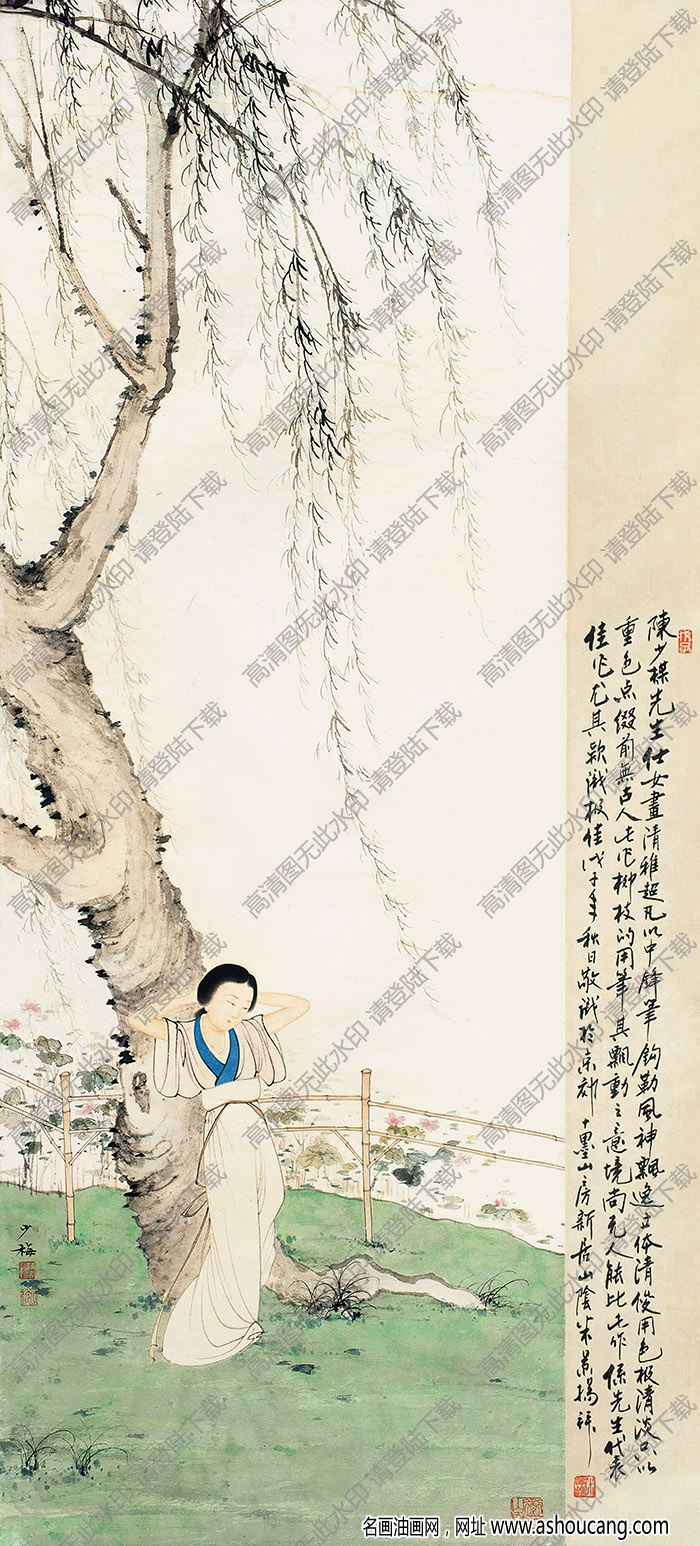 陳少梅先生仕女畫清雅超凡以中鋒筆鈎勒風神飄逸立体清俊用色极清淡只以
重色点缀前無古人此作柳枝的用筆其飄動之意境尚无人能比此作係先生代表
佳作尤其款識极佳戊子年秋日敬識於京郊十墨山房新居山陰朱景揚拜
少梅
高清图无此水印 请登陆下载
名画油画网，网址 www.ashoucang.com